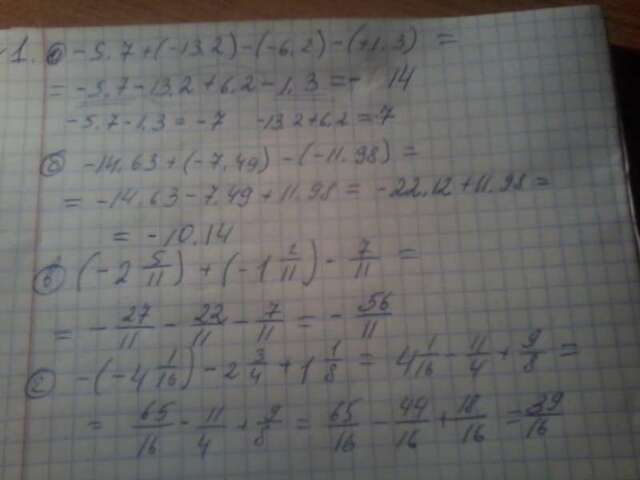 1. а) -5.7+(-13.2)-(-6.2)-(+1.3) =
= -5.7-13.2+6.2-1.3=- 14
-5.7-1.3=-7 -13.2+6.2=-7
б) -14.63+(-7.49)-(-11.98)=
= -14.63-7.49+11.98 = -22.12+11.98=
= -10.14
в) (-2 5/11)+(-1 /11)- 7/11 =
= - 27/11 - 22/11 - 7/11 = - 56/11
г) -(-4 1/16)-2 3/4+1 1/8 = 4 1/16 - 11/4 + 9/8 =
= 65/16 - 11/4 + 9/8 = 65/16 - 44/16 + 18/16 = 39/16